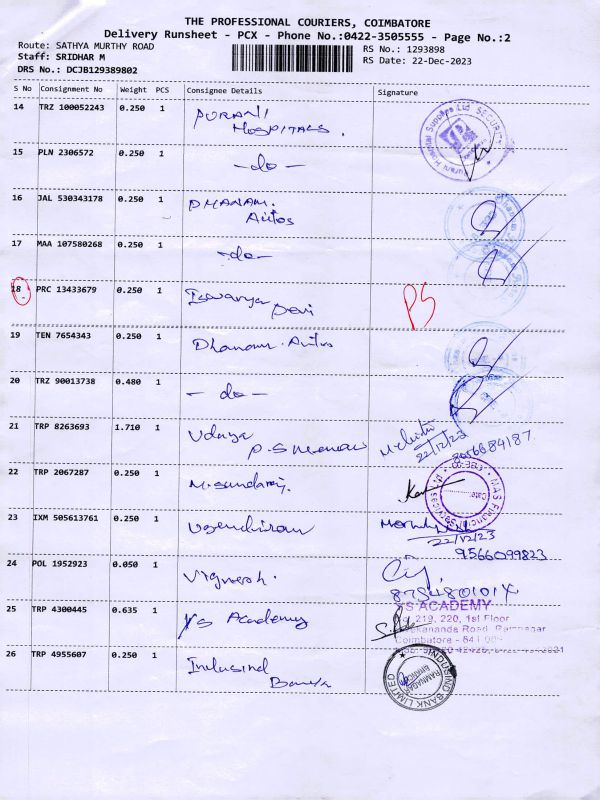 THE PROFESSIONAL COURIERS, COIMBATORE
Delivery Runsheet - PCX - Phone No.:0422-3505555 - Page No.:2
Route: SATHYA MURTHY ROAD
Staff: SRIDHAR M
DRS No.: DCJB129389802
RS No.: 1293898
RS Date: 22-Dec-2023
S No Consignment No Weight PCS Consignee Details Signature
14 TRZ 100052243 0.250 1 PURANI
HOSPITALS.
15 PLN 2306572 0.250 1 -do-
16 JAL 530343178 0.250 1 DHANAM.
Autos
17 MAA 107580268 0.250 1 -do-
18 PRC 13433679 0.250 1 Iswarya
Devi
PS
19 TEN 7654343 0.250 1 Dhanam. Autos
20 TRZ 90013738 0.480 1 - do -
21 TRP 8263693 1.710 1 Udaya
22/12/23
8056684187
22 TRP 2067287 0.250 1 M. Sundaraj.
MAS Financial Services
23 IXM 505613761 0.250 1
22/12/23
9566099823
24 POL 1952923 0.050 1 Vignesh.
25 TRP 4300445 0.635 1 YS Academy
YS ACADEMY
219, 220, 1st Floor
Road, Ramnagar
Coimbatore - 641 009
26 TRP 4955607 0.250 1 Indusind
Bank
INDUSIND BANK LIMITED
RAMNAGAR
BRANCH